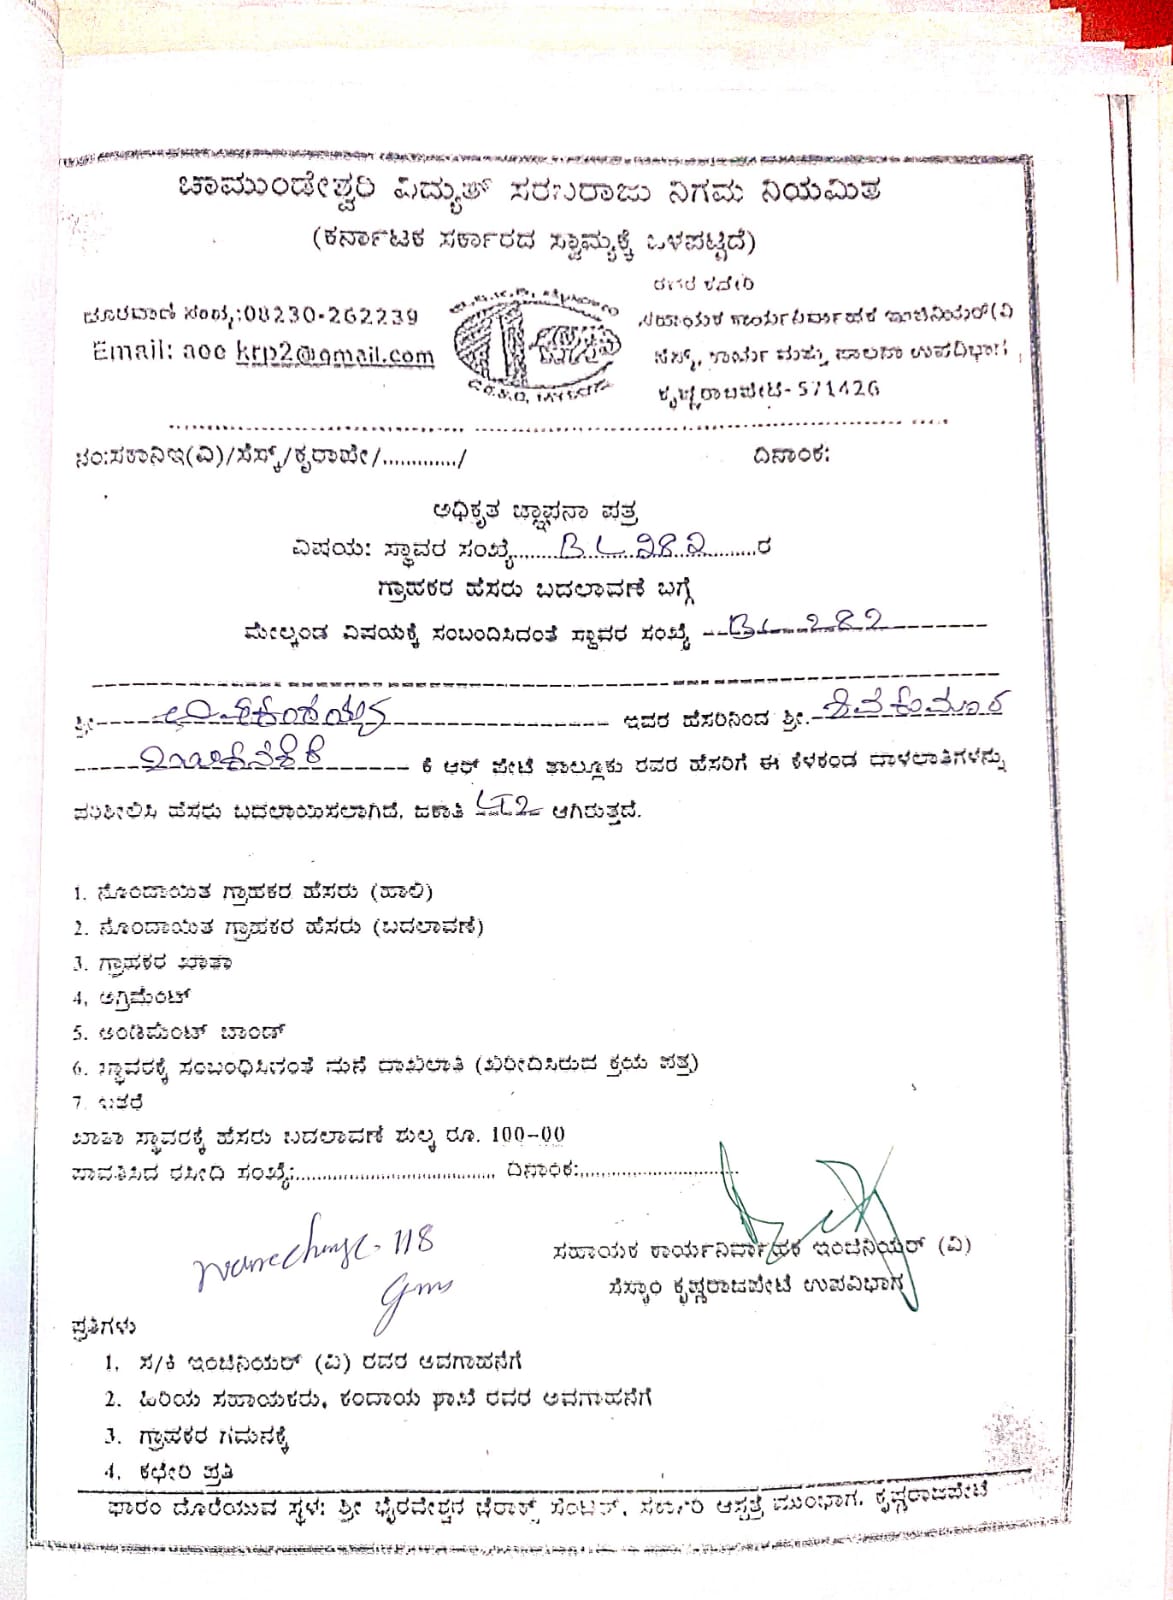 ಚಾಮುಂಡೇಶ್ವರಿ ವಿದ್ಯುತ್ ಸರಬರಾಜು ನಿಗಮ ನಿಯಮಿತ
(ಕರ್ನಾಟಕ ಸರ್ಕಾರದ ಸ್ವಾಮ್ಯಕ್ಕೆ ಒಳಪಟ್ಟಿದೆ)
ದೂರವಾಣಿ ಸಂಖ್ಯೆ:08230-262239
Email: aoo krp2@gmail.com
ರವರ ಕಛೇರಿ
ಸಹಾಯಕ ಕಾರ್ಯನಿರ್ವಾಹಕ ಇಂಜಿನಿಯರ್(ವಿ
ಸೆಸ್ಕ್, ಕಾರ್ಯ ಮತ್ತು ಪಾಲನಾ ಉಪವಿಭಾಗ,
ಕೃಷ್ಣರಾಜಪೇಟೆ-571426
ನಂ:ಸಕಾನಿಇ(ವಿ)/ಸೆಸ್ಕ್/ಕೃರಾಪೇ/............./ ದಿನಾಂಕ:
ಅಧಿಕೃತ ಜ್ಞಾಪನಾ ಪತ್ರ
ವಿಷಯ: ಸ್ಥಾವರ ಸಂಖ್ಯೆ.......BL 282.......ರ
ಗ್ರಾಹಕರ ಹೆಸರು ಬದಲಾವಣೆ ಬಗ್ಗೆ
ಮೇಲ್ಕಂಡ ವಿಷಯಕ್ಕೆ ಸಂಬಂದಿಸಿದಂತೆ ಸ್ಥಾವರ ಸಂಖ್ಯೆ --BL 282--------
ಶ್ರೀ---- ---------------- ಇವರ ಹೆಸರಿನಿಂದ ಶ್ರೀ.-ಶಿವಕುಮಾರ
-------- ಕೆ ಆರ್ ಪೇಟೆ ತಾಲ್ಲೂಕು ರವರ ಹೆಸರಿಗೆ ಈ ಕೆಳಕಂಡ ದಾಳಲಾತಿಗಳನ್ನು
ಪರಿಶೀಲಿಸಿ ಹೆಸರು ಬದಲಾಯಿಸಲಾಗಿದೆ. ಜಕಾತಿ LT2 ಆಗಿರುತ್ತದೆ.
1. ನೊಂದಾಯಿತ ಗ್ರಾಹಕರ ಹೆಸರು (ಹಾಲಿ)
2. ನೊಂದಾಯಿತ ಗ್ರಾಹಕರ ಹೆಸರು (ಬದಲಾವಣೆ)
3. ಗ್ರಾಹಕರ ಖಾತಾ
4, ಅಗ್ರಿಮೆಂಟ್
5. ಅಂಡಿಮೆಂಟ್ ಬಾಂಡ್
6. ಸ್ಥಾವರಕ್ಕೆ ಸಂಬಂಧಿಸಿದಂತೆ ಮನೆ ದಾಖಲಾತಿ (ಖರೀದಿಸಿರುವ ಕ್ರಯ ಪತ್ರ)
7. ಇತರೆ
ಖಾತಾ ಸ್ಥಾವರಕ್ಕೆ ಹೆಸರು ಬದಲಾವಣೆ ಶುಲ್ಕ ರೂ. 100-00
ಪಾವತಿಸಿದ ರಸೀದಿ ಸಂಖ್ಯೆ:................................... ದಿನಾಂಕ:............................
Name change - 118
ಸಹಾಯಕ ಕಾರ್ಯನಿರ್ವಾಹಕ ಇಂಜಿನಿಯರ್ (ವಿ)
ಸೆಸ್ಕಾಂ ಕೃಷ್ಣರಾಜಪೇಟೆ ಉಪವಿಭಾಗ
ಪ್ರತಿಗಳು
1. ಸ/ಕಿ ಇಂಜಿನಿಯರ್ (ವಿ) ರವರ ಅವಗಾಹನೆಗೆ
2. ಹಿರಿಯ ಸಹಾಯಕರು, ಕಂದಾಯ ಶಾಖೆ ರವರ ಅವಗಾಹನೆಗೆ
3. ಗ್ರಾಹಕರ ಗಮನಕ್ಕೆ
4. ಕಛೇರಿ ಪ್ರತಿ
ಫಾರಂ ದೊರೆಯುವ ಸ್ಥಳ: ಶ್ರೀ ಭೈರವೇಶ್ವರ ಜೆರಾಕ್ಸ್ ಸೆಂಟರ್, ಸರ್ಕಾರಿ ಆಸ್ಪತ್ರೆ ಮುಂಭಾಗ, ಕೃಷ್ಣರಾಜಪೇಟೆ